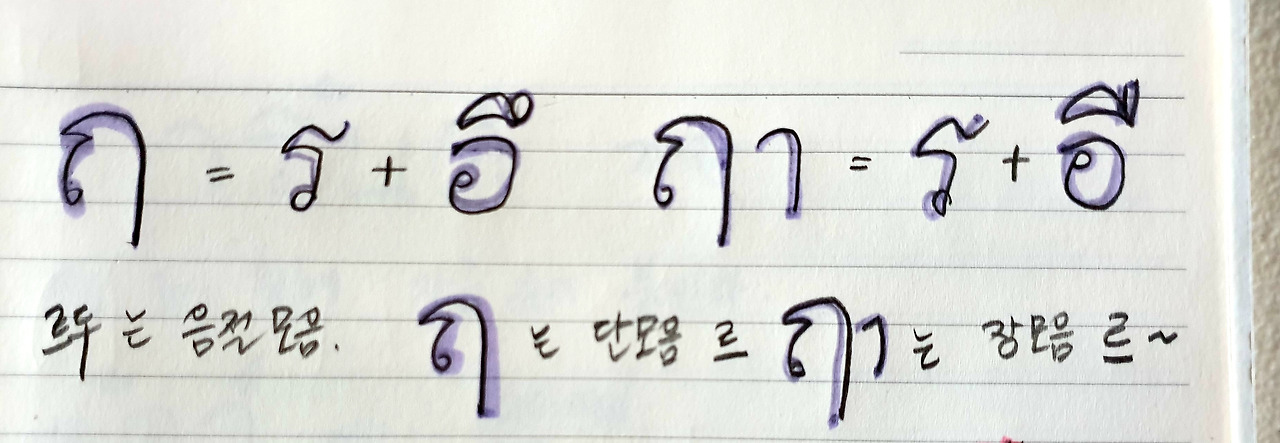 ฤ = ร + อึ ฤา = ร + อื
는 음절모음. ฤ 는 단모음 르 ฤา 는 장모음 르~